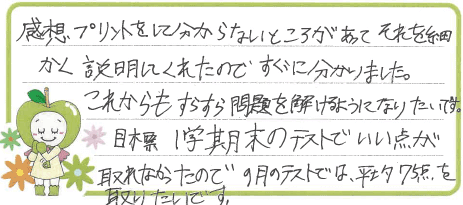 感想 プリントをして分からないところがあって それを細
かく 説明してくれたので すぐに分かりました。
これからも すらすら問題を解けるようになりたいです。
目標 1学期末のテストで いい点が
取れなかったので 9月のテストでは、平均75点を
取りたいです。